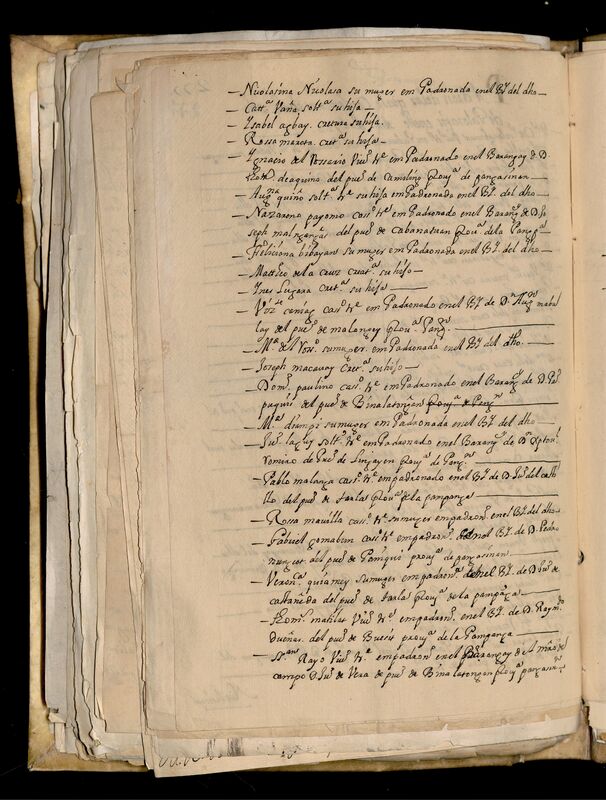 — Nicolasina Nicolasa su muger em Padronada en el B.y del dho —
— Catt.a Vaña solt.a su hija —
— Ysabel agbay. criatura su hija.
— Rossa maroea. criat.a su hija —
— Ygnacio del Rossario Viu.o tt.e em Padronado en el Barangay de D.
deaquino del pue.o de Camiling Prov.a de pangasinan —
— Aug.na quino solt.a tt.e su hija em Padronada en el B.y del dho —
— Nazareno payomo cas.o tt.e em Padronado en el Barang.y de D. Jo
seph malangas del pue.o de cabanatuan Prov.a dela Panp.a
— Feliciana bibayan su muger em Padronada en el B.y del dho —
— Mattheo de la Cruz criat.a su hijo —
— Ynes Lugara criat.a su hija —
— cas.o tt.e em Padronado en el B.y de D.n Aug.n mabu
lay del pue.o de malangey Prov.a Pang.n
— M.a del Ros.o su muger. em Padronada en el B.y del dho. —
— Joseph macavay criat.a su hijo —
— Dom.o paulino cas.o tt.e em Padronado en el Barang.y de D. Pa
del pue.o de Binalatongan Prov.a de Pang.n
— M.a dumpi su muger em Padronada en el B.y del dho —
— Ju.o solt.o tt.e em Padronado en el Barang.y de D.n
romino de Pue.o de Lingayen Prov.a de Pang.n
— Pablo malanga cas.o tt.e empadronado en el B.y de D. Ju.o del casti
llo del pue.o de tarlac Prov.a de la pampanga —
— Rossa mavilla cas.o tt.e su muger empadron.a en el B.y del dho —
— Gabriel gomabun cas.o tt.e empadron.o en el B.y de D. Pedro
del pue.o de Paniqui prov.a de pangasinan —
— Veron.ca quiamey su muger empadron.a en el B.y de D. Ju.o de
castañeda del pue.o de tarla Prov.a de la pampanga —
— Rom.o mahilas Viu.o tt.e empadron.o en el B.y de D. Raym.do
dueñas. del pue.o de Bucsis prov.a de la Pampanga
— Rayo Viu.o tt.e empadron.o en el Barangay del Mro de
campo D. Ju.o de Vera de pue.o de Binalatongan Prov.a pangasin.n